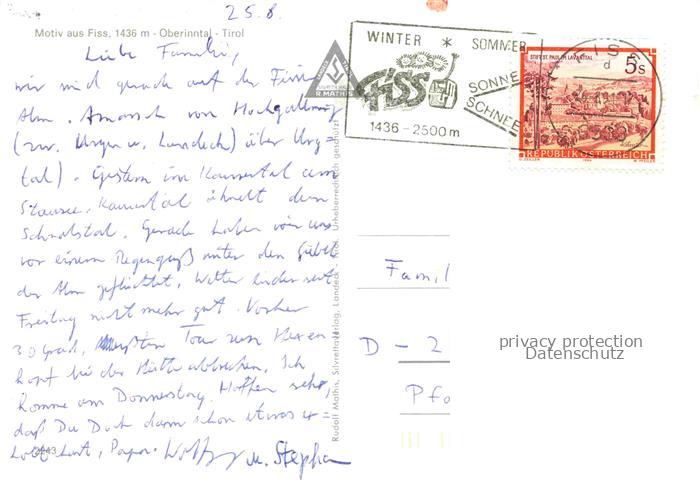 25.8.
Motiv aus Fiss, 1436 m - Oberinntal - Tirol
Liebe Familie,
wir sind gerade auf der Fisser
Alm. Anmarsch von Hochgallmig
(zw. Urgen u. Landeck) über Urg=
tal). Gestern im Kaunertal am
Stausee. Kaunertal ähnelt dem
Schnalstal. Gerade haben wir uns
vor einem Regenguß unter den Giebel
der Alm geflüchtet. Wetter leider seit
Freitag nicht mehr gut. Vorher
30 Grad, mußten Tour zum Hexen
kopf bei der Hütte abbrechen. Ich
komme am Donnerstag. Hoffen sehr,
daß Du Dich dann schon etwas er=
holt hast, Papa. Wolfg u. Stephan
2243
R. MATHIS
Rudolf Mathis, Silvretta-Verlag, Landeck - Tirol Unheberrechtlich geschützt
WINTER * SOMMER
FISS
SONNE
SCHNEE
1436 - 2500 m
STIFT ST. PAUL IM LAVANTTAL
5s
REPUBLIK ÖSTERREICH
FISS
d
Famil
D - 2
Pfo
privacy protection
Datenschutz